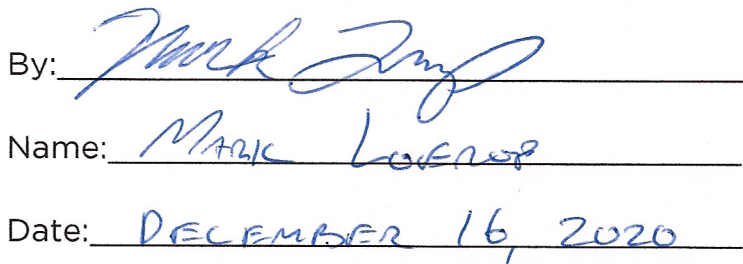 By: Mark
Name: Mark
Date: December 16, 2020